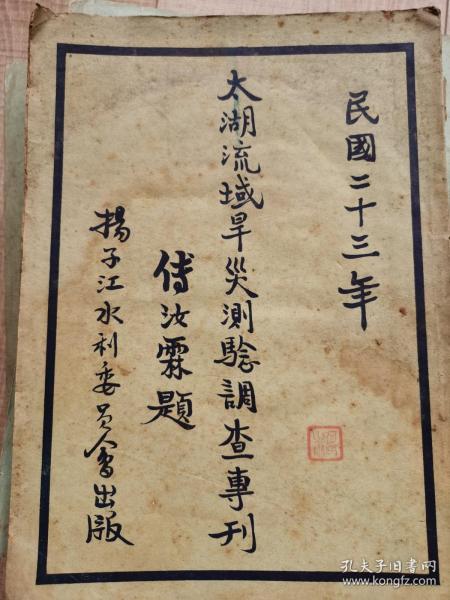 民國二十三年
太湖流域旱災測驗調查專刊
傅汝霖題
揚子江水利委員會出版
孔夫子旧书网
www.kongfz.com